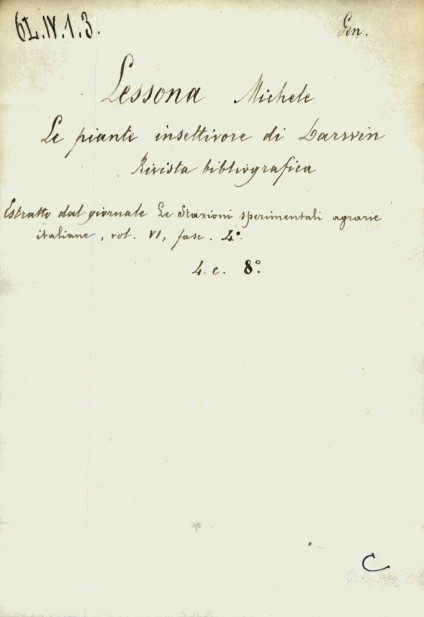 6L.IV.1.3.
Gen.
Lessona Michele
Le piante insettivore di Darwin
Rivista bibliografica
Estratto dal giornale Le Stazioni sperimentali agrarie
italiane, vol. VI, fasc. 4°
4. c. 8°.
C